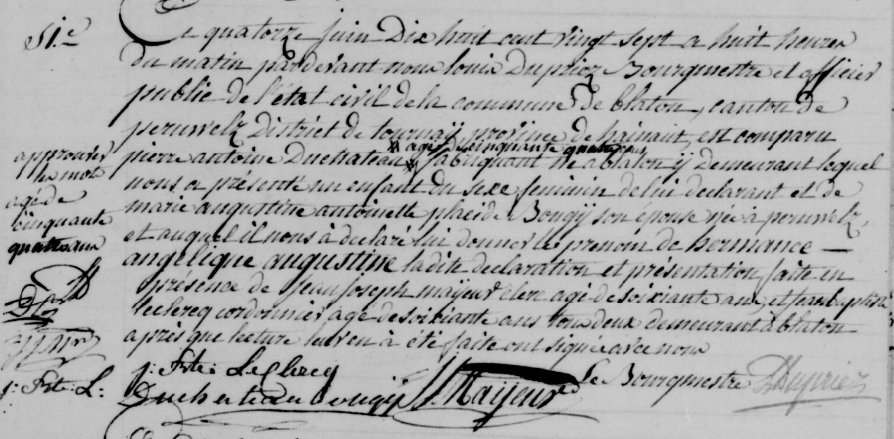 51.e
Ce quatorze juin Dix huit cent vingt sept a huit heures
du matin pardevant nous louis Dupriez Bourquestre et officier
public de l'état civil de la commune de blaton, canton de
peruwelz District de tournay province de hainaut, est comparu
* agé de cinquante quatre ans
pierre antoine Duchateau * fabriquant né a blaton y demeurant lequel
nous a présenté un enfant du sexe feminin de lui declarant et de
marie augustine antoinette placide Bougy son épouse née à peruwelz,
et auquel il nous à declaré lui donner le prenom de hermance —
angélique augustine la dite declaration et présentation faite en
présence de jean joseph mayeur clerc agé de soixiante ans, et jean baptiste
leclercq cordonnier agé de soixiante ans tous deux demeurant à blaton
après que lecture leur en à été faite ont signé avec nous
le Bourquestre
j: Bte: Leclercq
Duchateau bougy J. J. Mayeur Dupriez
approuvés
les mots
agé de
cinquante
quatre ans
j: Bte: L: